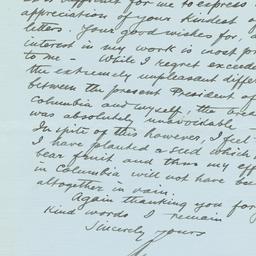 difficult for me to express
appreciation of your kindest
letters. Your good wishes for,
interest in my work is most
to me – While I regret
the extremely unpleasant
between the present President of
Columbia and myself, the
was absolutely unavoidable
In spite of this however, I feel
I have planted a seed which
bear fruit and thus my
in Columbia will not have
altogether in vain.
Again thanking you for
kind words I remain
Sincerely yours